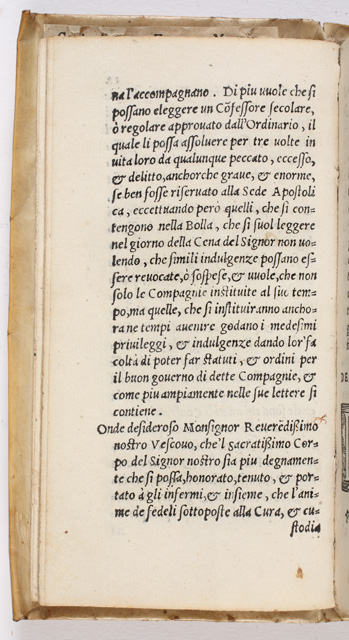 na l'accompagnano. Di piu vuole che si
possano eleggere un Cõfessore secolare,
ò regolare approvato dall'Ordinario, il
quale li possa assoluere per tre volte in
vita loro da qualunque peccato, eccesso,
& delitto, anchorche graue, & enorme,
se ben fosse riseruato alla Sede Apostoli
ca, eccettuando però quelli, che si con-
tengono nella Bolla, che si suol leggere
nel giorno della Cena del Signor non vo-
lendo, che simili indulgenze possano es-
sere reuocate, ò sospese, & vuole, che non
solo le Compagnie instituite al suo tem-
po, ma quelle, che si instituiranno ancho-
ra ne tempi auenire godano i medesimi
priuileggi, & indulgenze dando lor'fa
coltà di poter far statuti, & ordini per
il buon governo di dette Compagnie, &
come piu ampiamente nelle sue lettere si
contiene.
Onde desideroso Monsignor Reuerẽdissimo
nostro Vescouo, che'l sacratissimo Cor-
po del Signor nostro sia piu degnamen-
te che si possa, honorato, tenuto, & por-
tato à gli infermi, & insieme, che l'ani-
me de fedeli sottoposte alla Cura, & cu-
stodia